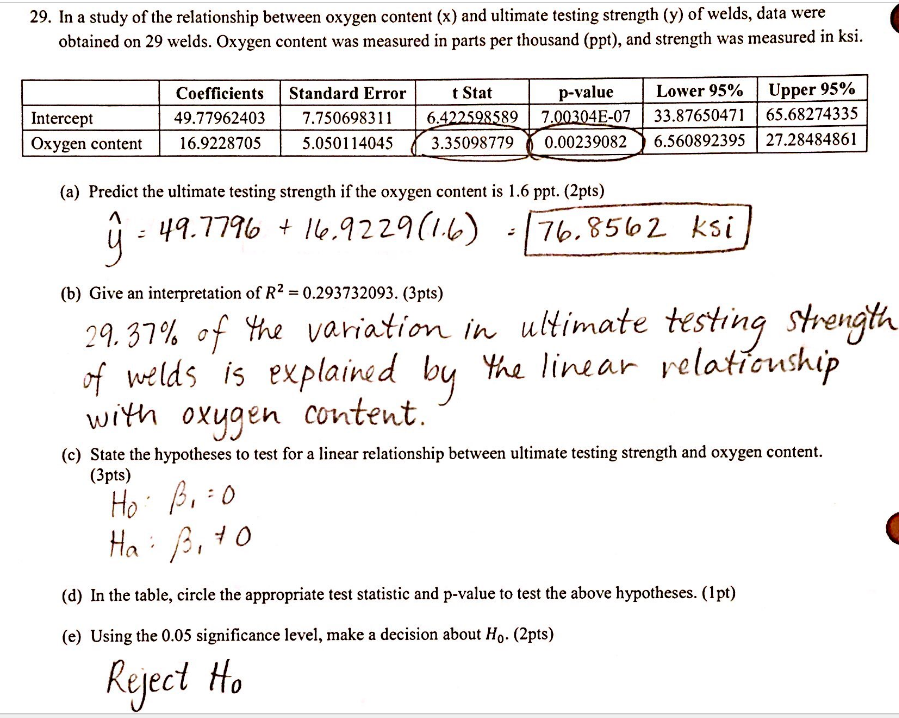 29. In a study of the relationship between oxygen content (x) and ultimate testing strength (y) of welds, data were
obtained on 29 welds. Oxygen content was measured in parts per thousand (ppt), and strength was measured in ksi.
Coefficients Standard Error t Stat p-value Lower 95% Upper 95%
Intercept 49.77962403 7.750698311 6.422598589 7.00304E-07 33.87650471 65.68274335
Oxygen content 16.9228705 5.050114045 3.35098779 0.00239082 6.560892395 27.28484861
(a) Predict the ultimate testing strength if the oxygen content is 1.6 ppt. (2pts)
ŷ = 49.7796 + 16.9229(1.6) = 76.8562 ksi
(b) Give an interpretation of R² = 0.293732093. (3pts)
29.37% of the variation in ultimate testing strength
of welds is explained by the linear relationship
with oxygen content.
(c) State the hypotheses to test for a linear relationship between ultimate testing strength and oxygen content.
(3pts)
Ho: β₁ = 0
Ha: β₁ ≠ 0
(d) In the table, circle the appropriate test statistic and p-value to test the above hypotheses. (1pt)
(e) Using the 0.05 significance level, make a decision about H₀. (2pts)
Reject Ho